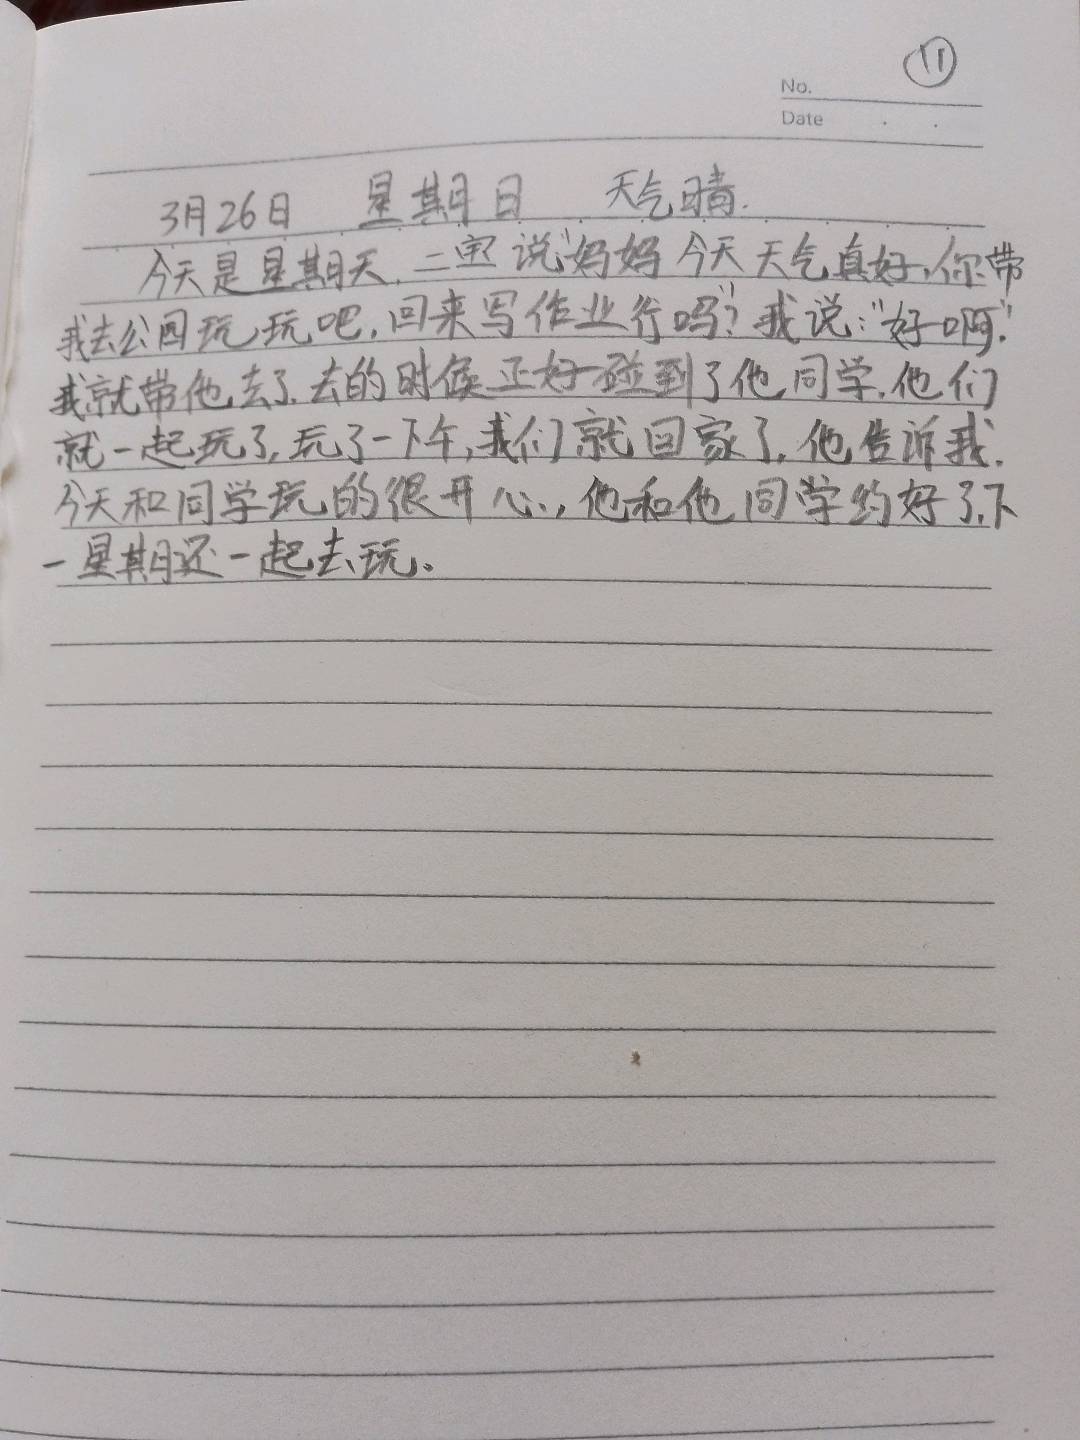 ⑪
No.
Date . .
3月26日 星期日 天气晴.
今天是星期天.二宝说"妈妈今天天气真好,你带
我去公园玩玩吧,回来写作业行吗"?我说:"好啊."
我就带他去了.去的时候正好碰到了他同学.他们
就一起玩了,玩了一下午,我们就回家了.他告诉我.
今天和同学玩的很开心.,他和他同学约好了,下
一星期还一起去玩。